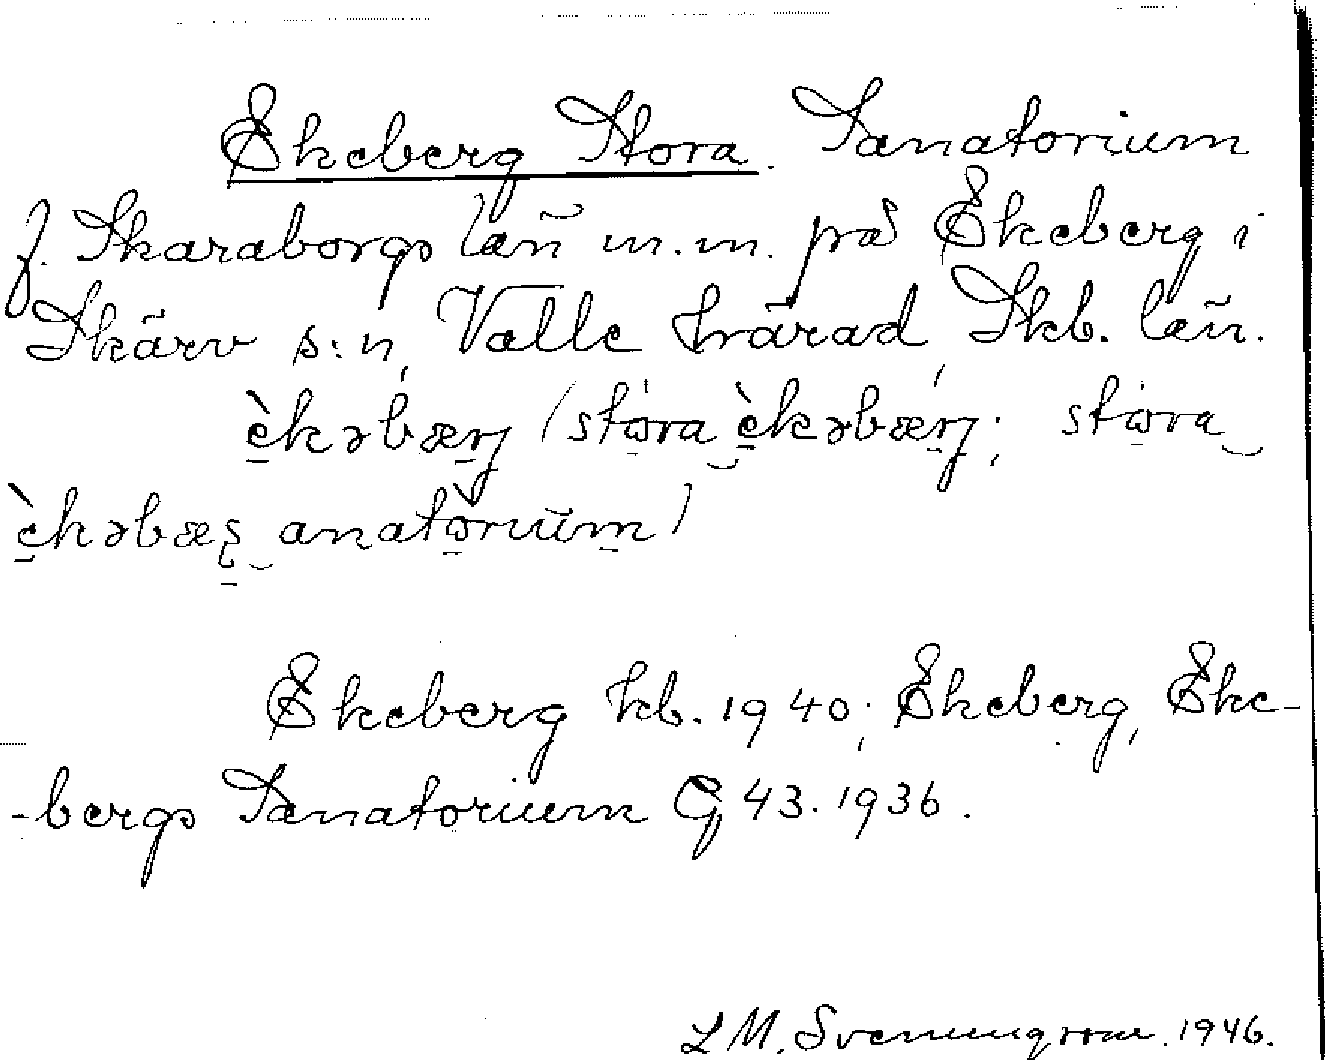 Ekeberg Stora. Sanatorium
f. Skaraborgs län m.m. på Ekeberg i
Skärv s:n, Valle härad, Skb. län.
èkəbærj (stora èkəbærj; stora
èkəbæʂ anatòrium)
Ekeberg kb. 1940; Ekeberg, Eke-
-bergs Sanatorium G 43. 1936.
L M. Svenungsson. 1946.